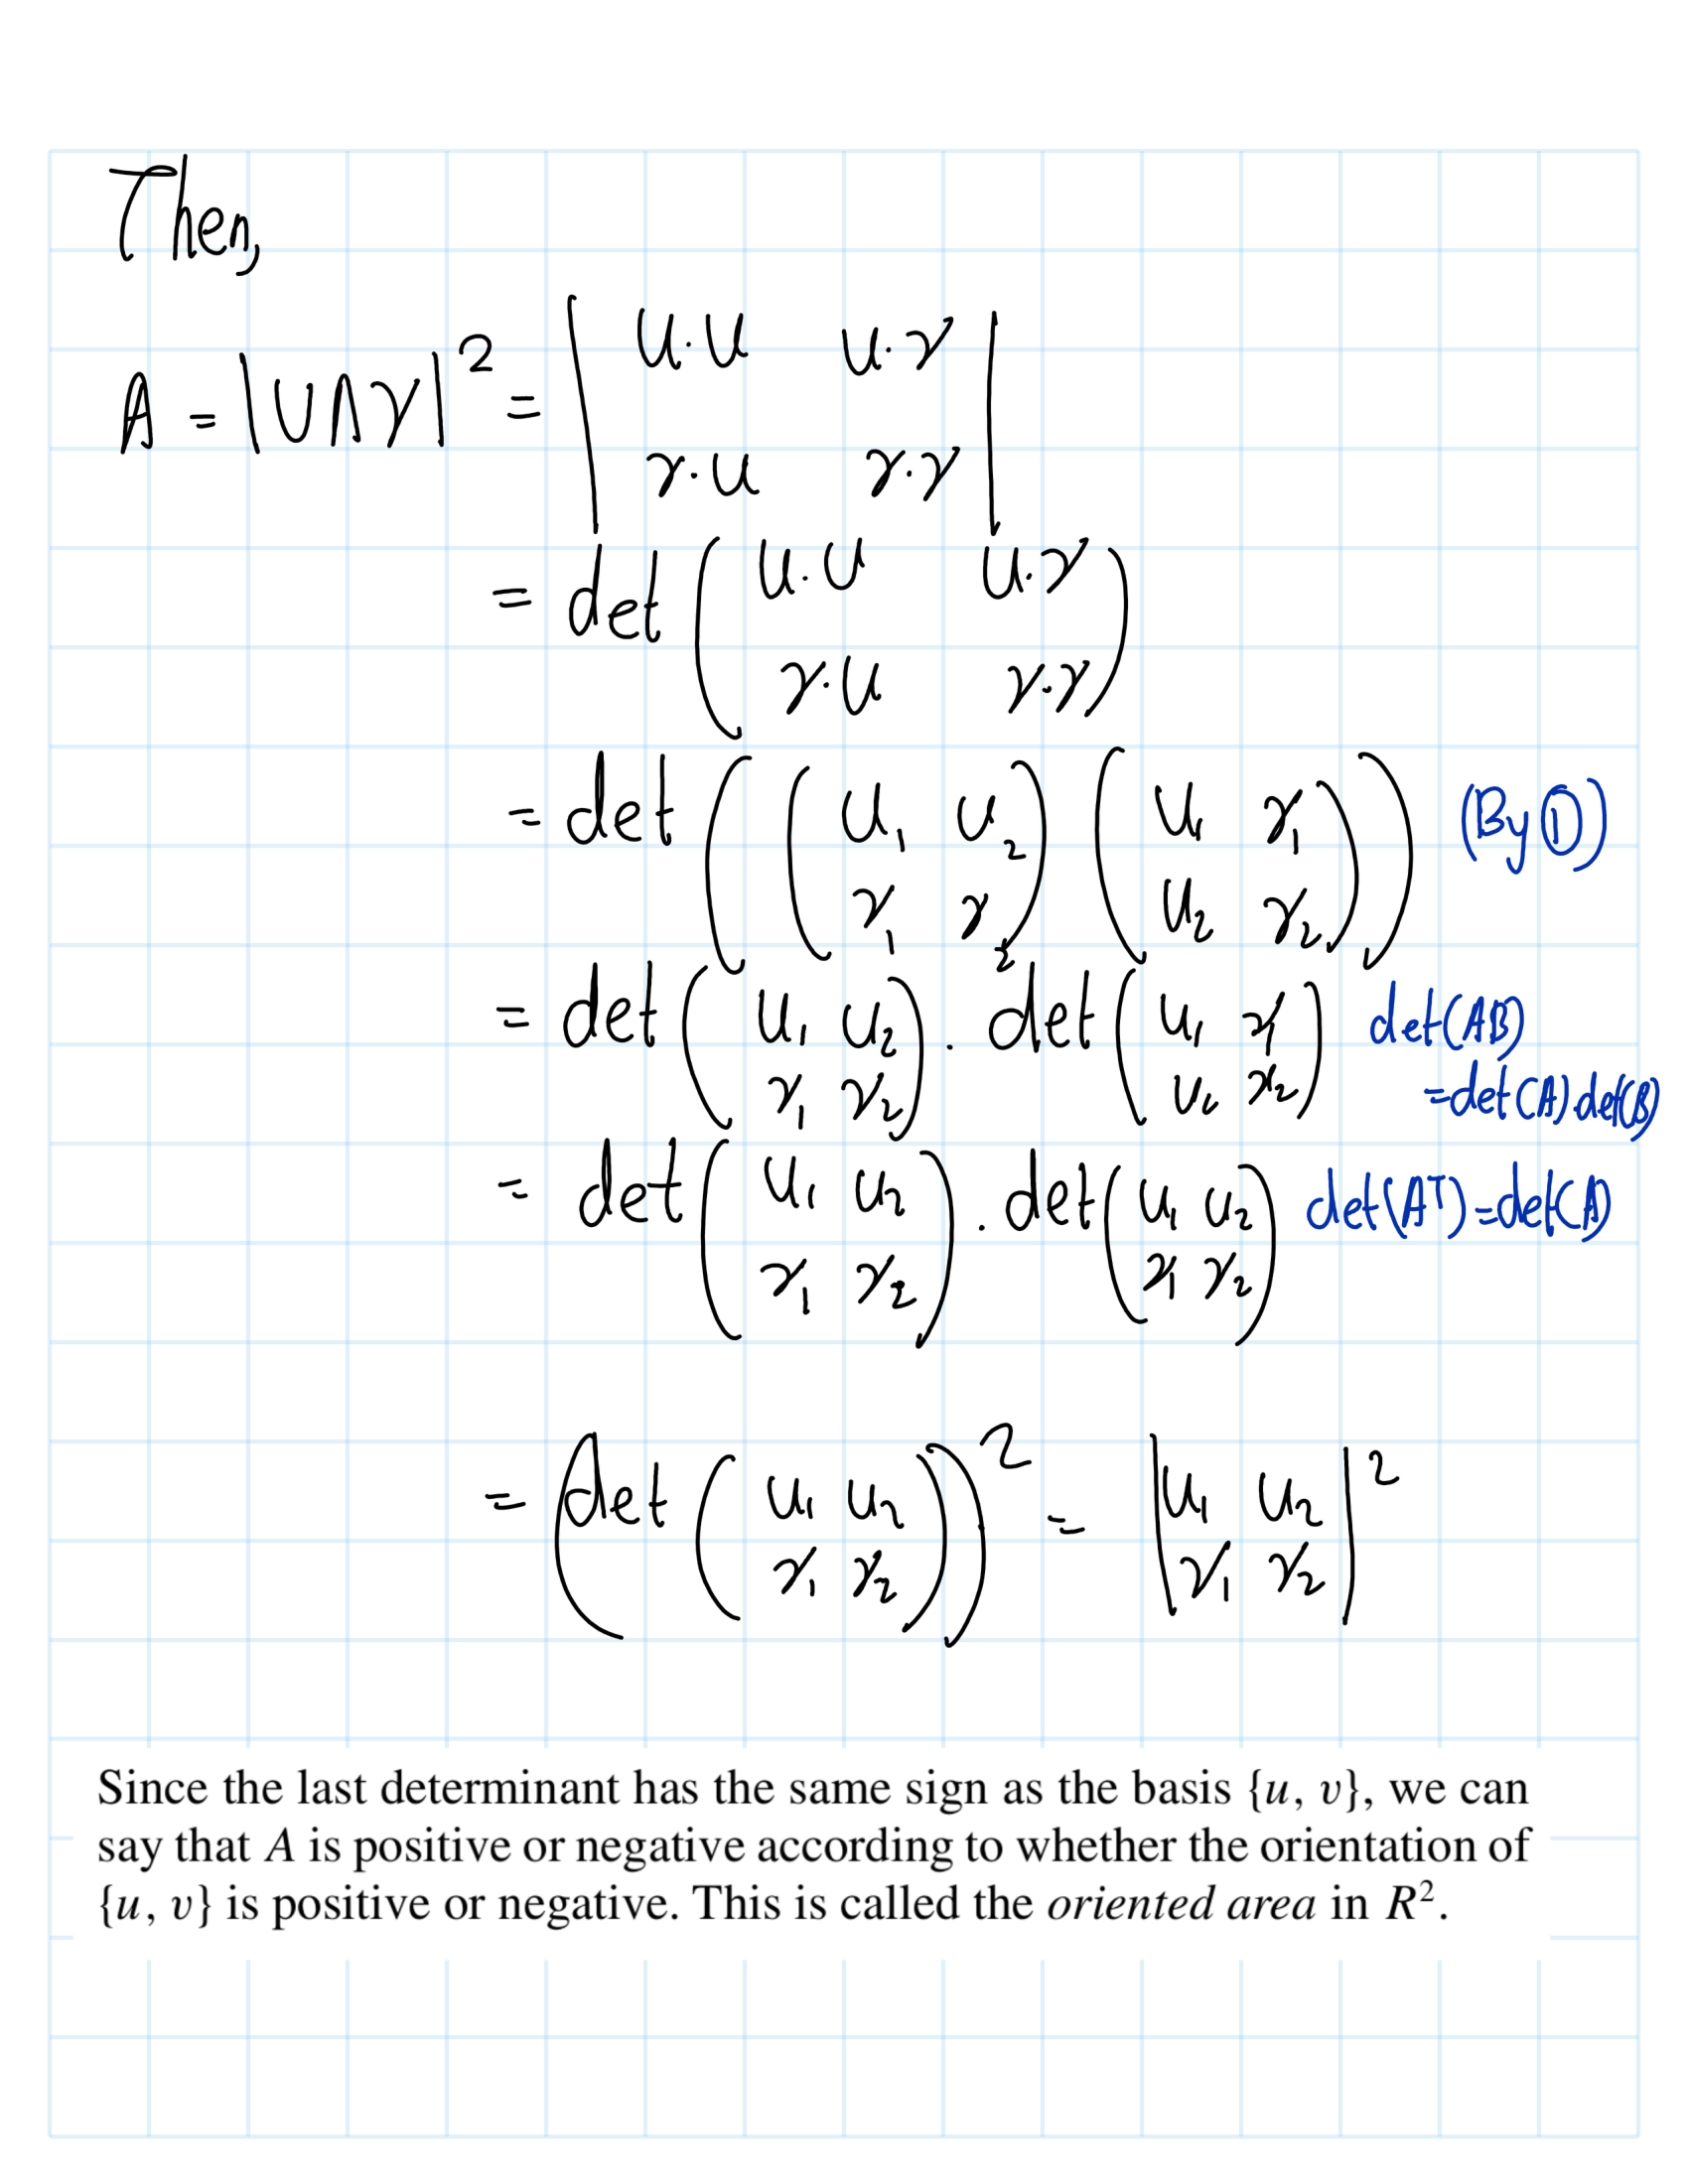 Then,
A = |U∧v|² = | u·u u·v |
| v·u v·v |
= det ( u·u u·v )
( v·u v·v )
= det ( ( u₁ u₂ ) ( u₁ v₁ ) ) (By ①)
( ( v₁ v₂ ) ( u₂ v₂ ) )
= det ( u₁ u₂ ) . det ( u₁ v₁ ) det(AB)
( v₁ v₂ ) ( u₂ v₂ ) =det(A).det(B)
= det ( u₁ u₂ ) . det ( u₁ u₂ ) det(Aᵀ)=det(A)
( v₁ v₂ ) ( v₁ v₂ )
= ( det ( u₁ u₂ ) )² = | u₁ u₂ |²
( v₁ v₂ ) | v₁ v₂ |
Since the last determinant has the same sign as the basis {u, v}, we can
say that A is positive or negative according to whether the orientation of
{u, v} is positive or negative. This is called the oriented area in R².